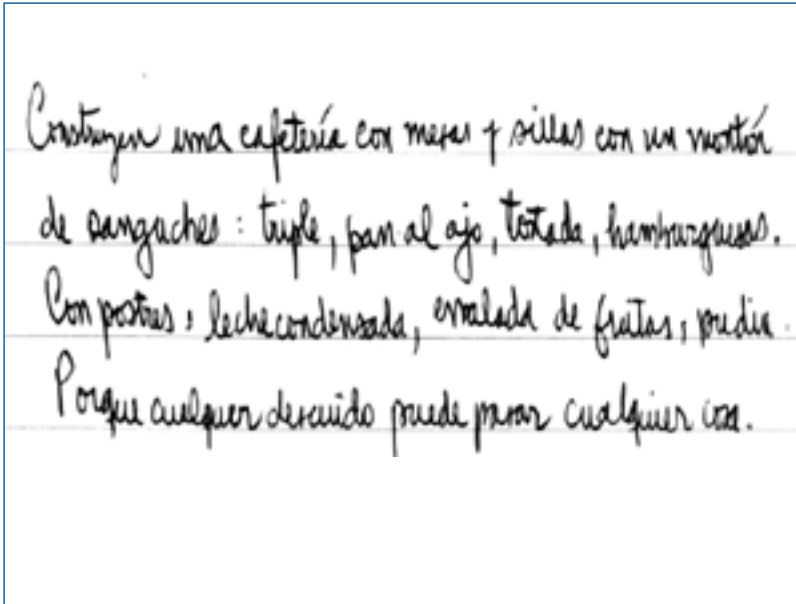 Construyen una cafetería con mesas y sillas con un montón
de sanguches: triple, pan al ajo, tostada, hamburguesas.
Con postres, leche condensada, ensalada de frutas, pudin.
Porque cualquer descuido puede pasar cualquier cosa.